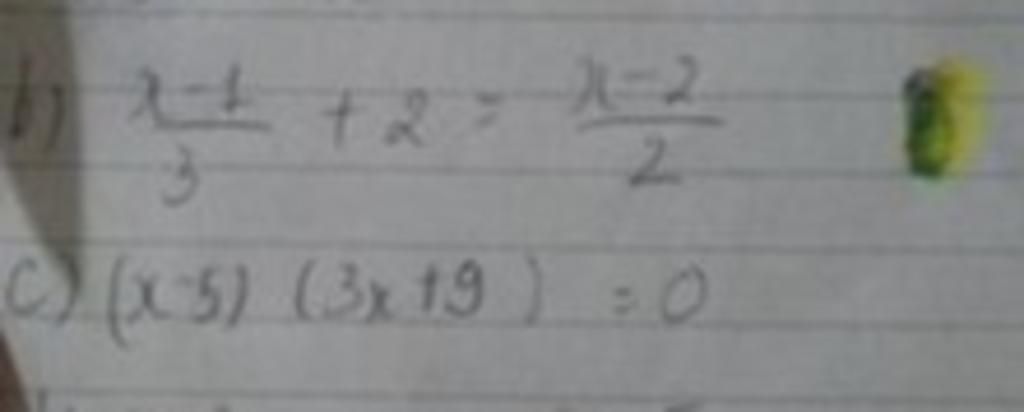 b) \frac{x-1}{3} + 2 = \frac{x-2}{2}
c) (x-5) (3x+9) = 0